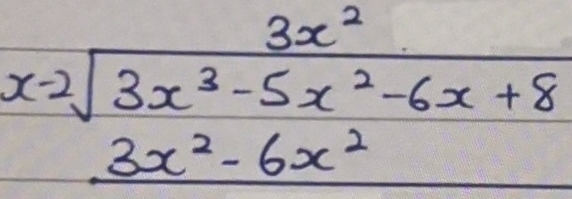 3x²
x-2√3x³-5x²-6x+8
3x²-6x²